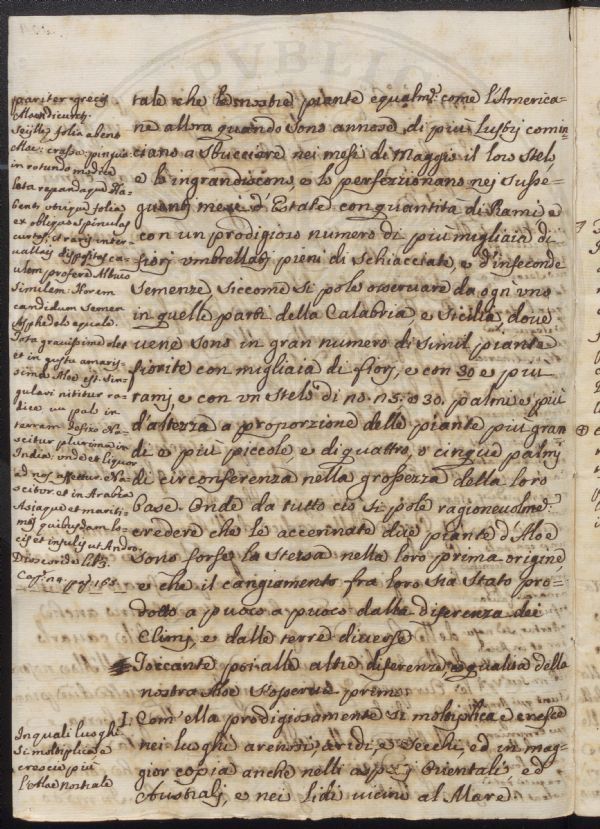 PVBLIC
pariter greci
Aloen dicunt.
folia habent
Aloe: crassa: pinguia
in rotundo modice
lata
benti utrique folia
ex obliquo spinulas
curtas; et raris inter-
vallis dispositas ca-
ulem profere
similem: florem
candidum semen
Asphodelo equale.
Tota gravissime olet
et in gustu amaris-
sima Aloe est. Sin-
gulari nititur ra-
dice uu palo in
terram defixo Na-
scitur plurima in
India, unde et liquor
ad nos affertur. Na-
scitur et in Arabia
Asiaque et mariti-
mis quibusdam lo-
cis et insulis ut Andro.
Dioscoride lib. 3
Cap.
tale che le nostre piante equalmᵉ: come l'America-
ne allora quando sono annose di più lustri comin-
ciano a sbucciare nei mesi di Maggio il loro stelo
e lo ingrandiscono, e lo perfezzionano nej susse-
guenti mesi d'Estate con quantità di Rami e
con un prodigioso numero di più migliaia di
fiorj umbrellati pieni di schiacciate, e d'infeconde
semenze, siccome si pole osservare da ogn'uno
in quelle parti della Calabria e Sicilia dove
uene sono in gran numero di simil piante
fiorite con migliaia di fiorj, e con 30 e più
ramj e con un stelo di 10. 15. o 30. palmi e più
d'altezza a proporzione delle piante più gran
di o più piccole, e di quattro, o cinque palmj
di circonferenza nella grossezza della loro
base. Onde da tutto ciò si pole ragioneuolmᵉ:
credere che le accennate due piante d'Aloe
sono forse la stessa nella loro prima origine,
e che il cangiamento fra loro sia stato pro-
dotto a puoco a puoco dalla diferenza dei
Climj, e dalle terre diverse
Toccante poi alle altre diferenze, e qualità della
nostra Aloe s'osserva primo
I. Com' ella prodigiosamente si moltiplica e cresce
nei luoghi arenosi aridi, e secchi, ed in mag-
gior copia anche nelli Orientali, ed
Australj, e nei lidi vicini al Mare
In quali luoghi
si moltiplica e
cresce più
l'Aloe nostrale